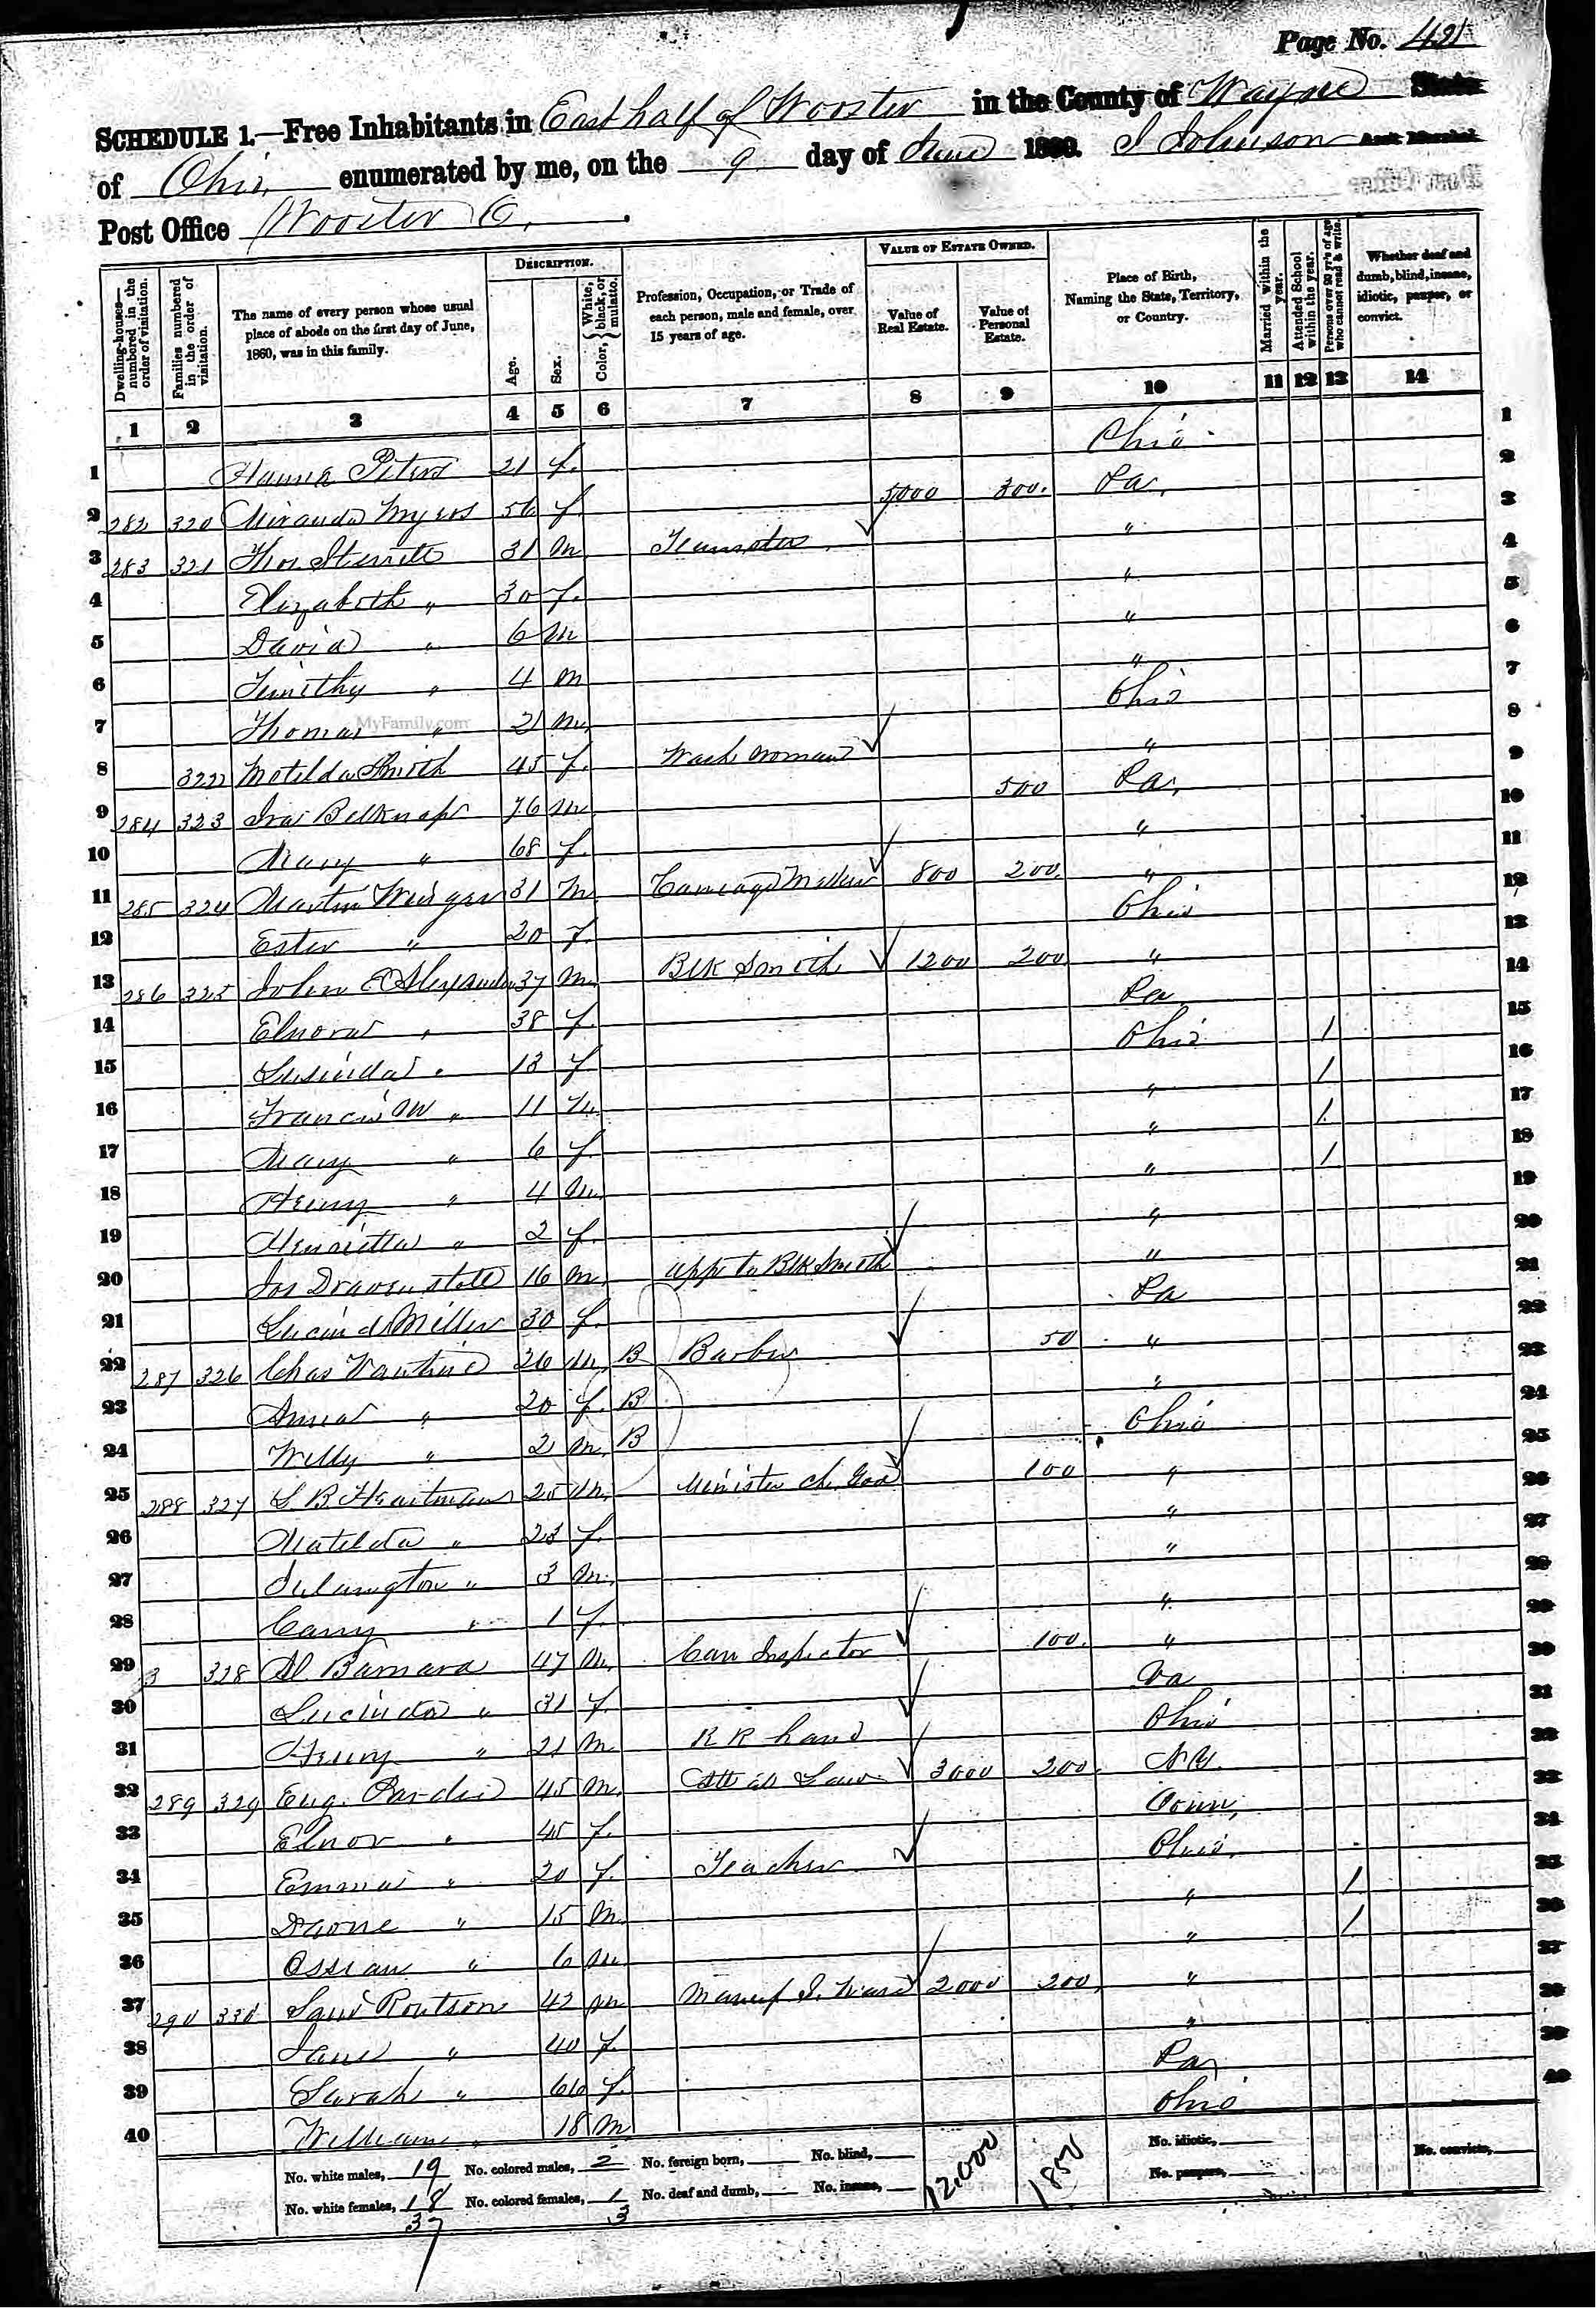 Page No. 421
SCHEDULE 1.—Free Inhabitants in East half of Wooster in the County of Wayne State
of Ohio enumerated by me, on the 9 day of June 1860. J Johnson Asst Marshal
Post Office Wooster O.
Dwelling-houses—numbered in the order of visitation.
Families numbered in the order of visitation.
The name of every person whose usual place of abode on the first day of June, 1860, was in this family.
DESCRIPTION.
Age.
Sex.
Color, White, black, or mulatto.
Profession, Occupation, or Trade of each person, male and female, over 15 years of age.
VALUE OF ESTATE OWNED.
Value of Real Estate.
Value of Personal Estate.
Place of Birth, Naming the State, Territory, or Country.
Married within the year.
Attended School within the year.
Persons over 20 yr's of age who cannot read & write.
Whether deaf and dumb, blind, insane, idiotic, pauper, or convict.
1 2 3 4 5 6 7 8 9 10 11 12 13 14
1 Hanna Peters 21 f. Ohio
2 282 320 Miranda Myers 56 f. 5000 300. Pa,
3 283 321 Thos. Sterrite 31 m Teamster "
4 Elizabeth " 30 f. "
5 David " 6 m "
6 Timithy " 4 m "
7 Thomas " m Ohio
MyFamily.com
8 322 Matilda Smith 45 f. Wash woman "
9 284 323 Ira Belknap 76 m 500 Pa,
10 Mary " 68 f. "
11 285 324 Martin 31 m Carriage Maker 800 200 "
12 Ester " 20 f. Ohio
13 286 325 John E Alexander 37 m Blk Smith 1200 200 "
14 Elnora " 38 f. Pa
15 Lusinda " 13 f Ohio 1
16 Francis M " 11 m " 1
17 Mary " 6 f. " 1
18 Henry " 4 m " 1
19 Henrietta " 2 f. "
20 Jos Dravenstote 16 m app to Blk Smith "
21 Lucind Miller 30 f. Pa
22 287 326 Chas Vantine 26 m B Barber 50 "
23 " 20 f. B "
24 Willy " 2 m B Ohio
25 288 327 S B Heartman 25 m Minister Ch. God 100 "
26 Matilda " 23 f. "
27 " 3 m "
28 Carry " 1 f. "
29 3 328 Al Barnard 47 m Car Inspector 100. "
30 Lucinda " 31 f. Va
31 Henry " 21 m R R hand Ohio
32 289 329 Eug. Pardee 45 m Att at Law 3000 200. N.Y.
33 Elnor " 45 f. Conn,
34 Emma " 20 f. Teacher Ohio,
35 " 15 m " 1
36 Ossian " 6 m " 1
37 290 330 Saml Routson 42 m Manuf 2000 200, "
38 Jane " 40 f. "
39 Sarah " f. Pa,
40 William " 18 m Ohio
No. white males, 19 No. colored males, 2 No. foreign born, No. blind, 12,000 1850 No. idiotic, No. convicts,
No. white females, 18 No. colored females, 1 No. deaf and dumb, No. insane, No. paupers,
37 3